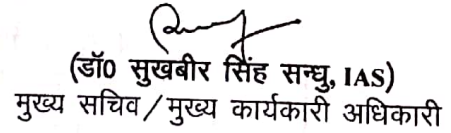 (डॉ0 सुखबीर सिंह सन्धु, IAS)
मुख्य सचिव / मुख्य कार्यकारी अधिकारी